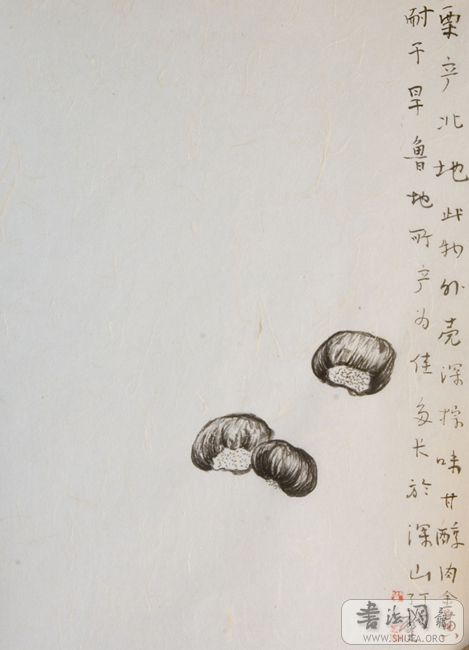 栗产北地此物外壳深棕味甘醇肉金黄
耐干旱鲁地所产为佳多长於深山
书法网
WWW.SHUFA.ORG